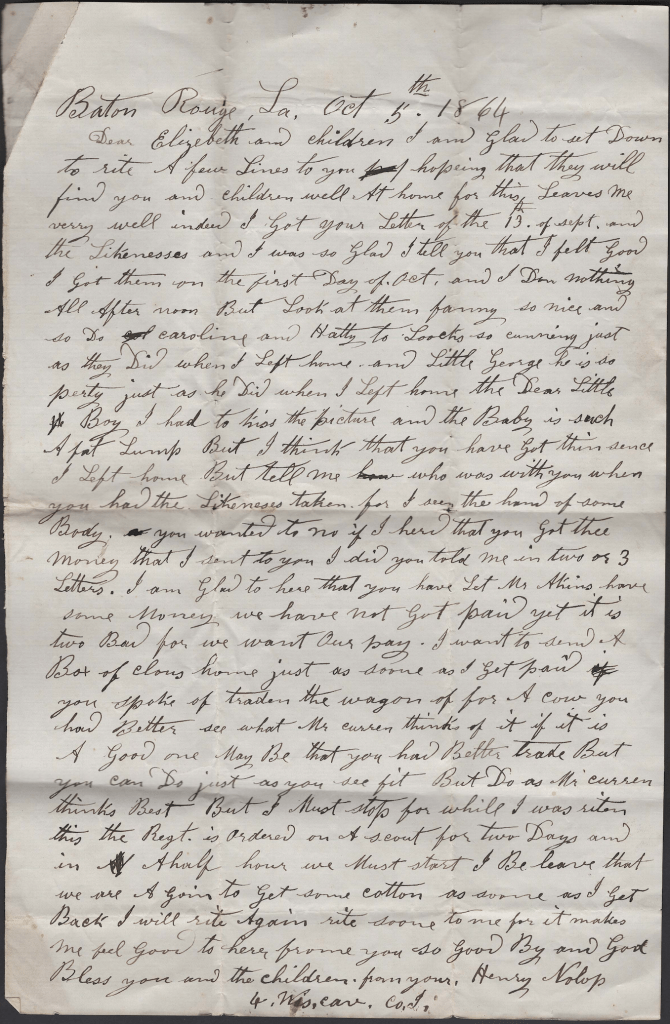 Baton Rouge, La. Oct 5th. 1864
Dear Elizebeth and children I am Glad to set Down
to rite A few Lines to you hopeing that they will
find you and children well At home for this Leaves Me
verry well indeed I Got your Letter of the 13th. of sept. and
the Likenesses and I was so Glad I tell you that I felt Good
I Got them on the first Day of. Oct, and I Don nothing
All After noon But Look at them fanny so nice and
so Do caroline and Hatty to Loocks so cunning just
as they Did when I Left home. and Little George he is so
perty just as he Did when I Left home the Dear Little
Boy I had to kiss the picture and the Baby is such
A fat Lump But I think that you have Got thin sence
I Left home But tell me who was with you when
you had the Likeneses taken. for I see the hand of some
Body. you wanted to no if I herd that you Got thee
Money that I sent to you I did you told me in two or 3
Letters. I am Glad to here that you have Let Mr Akins have
some Money we have not Got paid yet it is
two Bad for we want Our pay. I want to send A
Box of clous home just as soone as I Get paid
you spoke of traden the wagon of for A cow you
had Better see what Mr curren thinks of it if it is
A Good one May Be that you had Better trade But
you can Do just as you see fit But Do as Mr curren
thinks Best But I Must stop for whill I was riten
this the Regt. is Ordered on A scout for two Days and
in A half hour we Must start I Be leave that
we are A Goin to Get some cotton as soone as I Get
Back I will rite Again rite soone to me for it makes
Me feel Good to here frome you so Good By and God
Bless you and the children. from your. Henry Nolop
4. Wis. cav. Co. I.